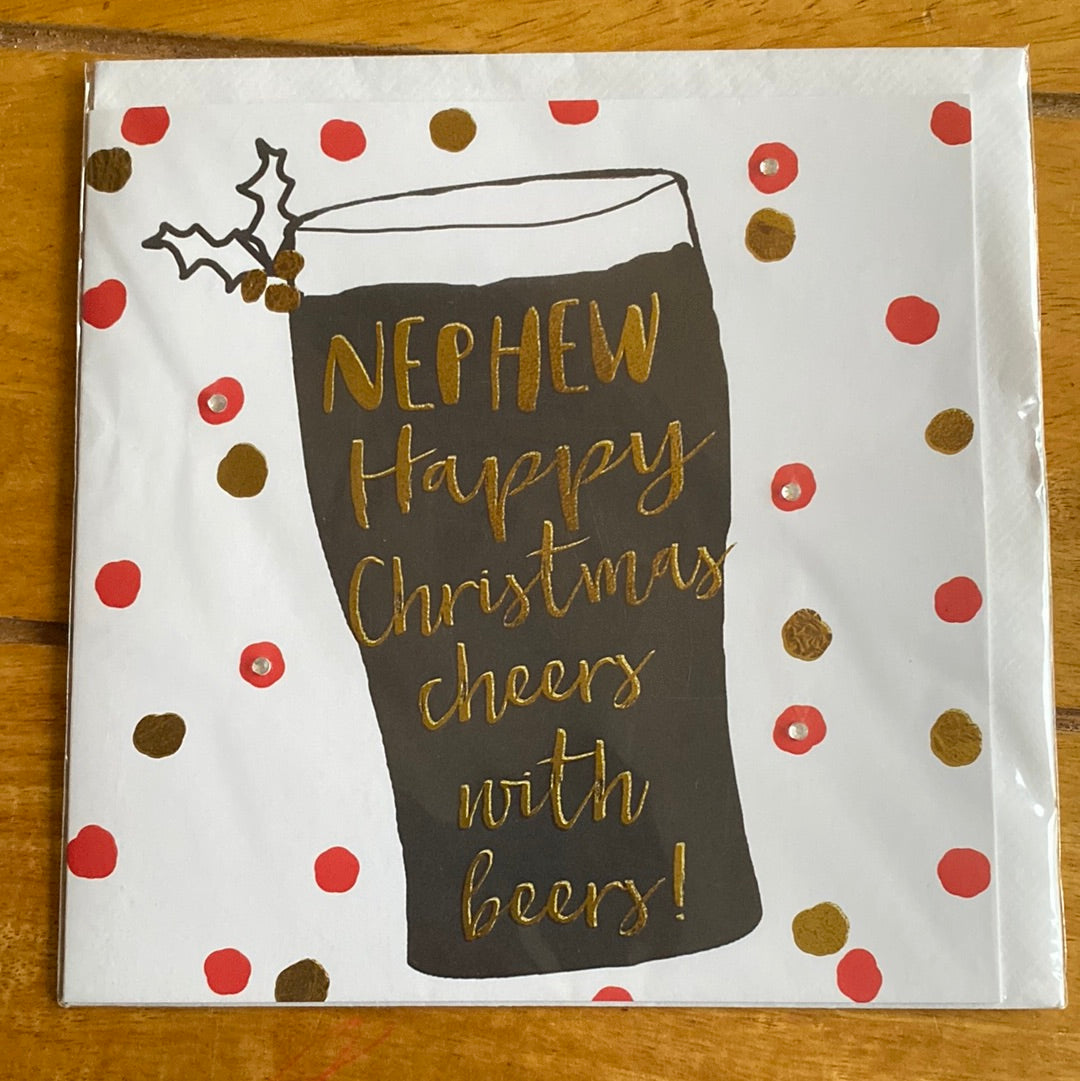 NEPHEW
Happy
Christmas
cheers
with
beers!